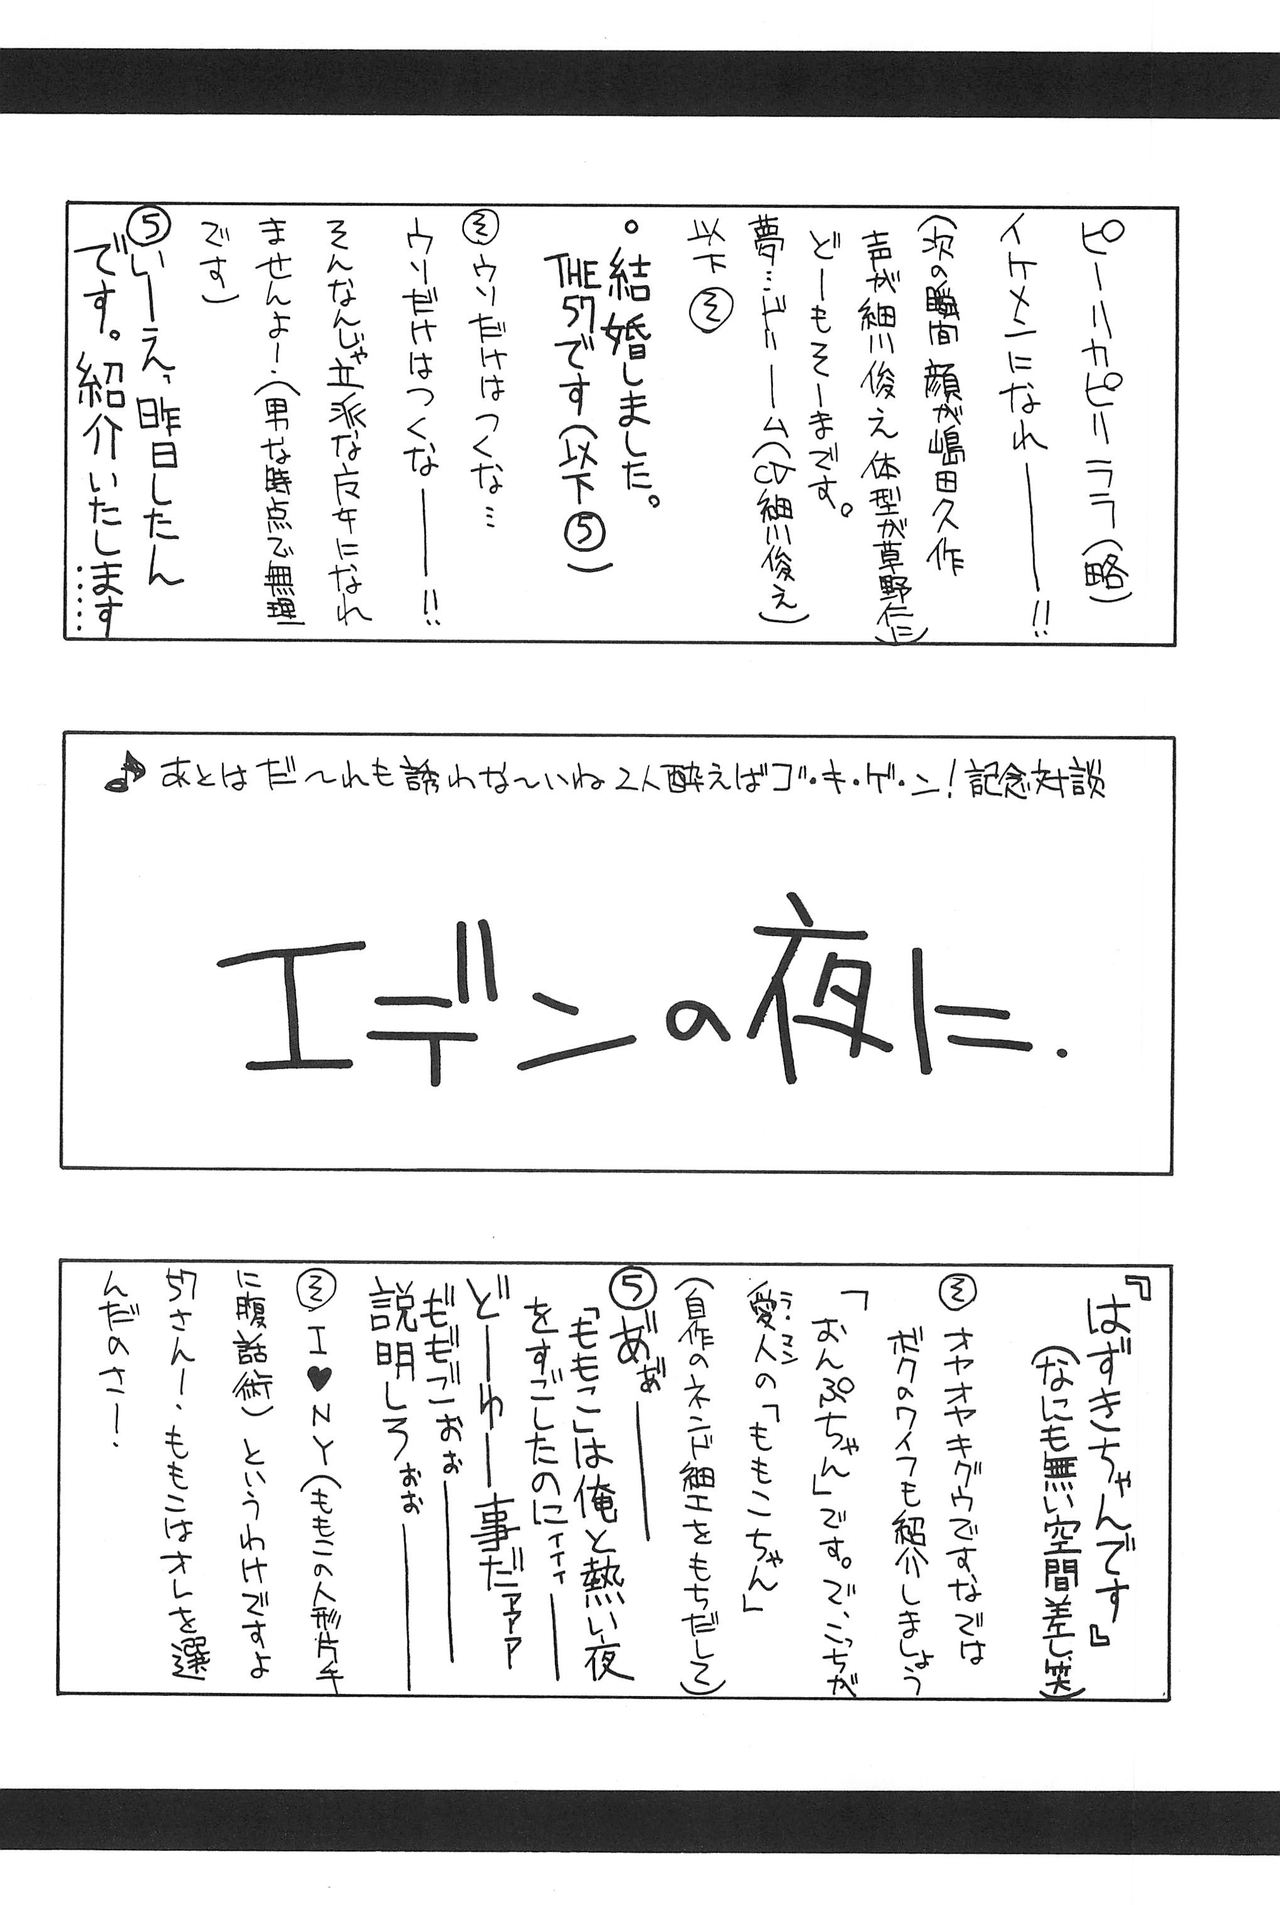 ピーリカピリララ(略)
イケメンになれ――――!!
(次の瞬間 顔が嶋田久作
声が細川俊之 体型が草野仁に)
どーもそーまです。
夢…ドリーム(CV細川俊之)
以下そ
。結婚しました。
THE57です(以下5)
そウソだけはつくな…
ウソだけはつくな――――!!
そんなんじゃ立派な方女になれ
ませんよー.(男な時点で無理
です)
5いーえ、昨日したん
です。紹介いたします……
♪あとはだ〜れも誘わな〜いね2人酔えばゴ・キ・ゲ・ン!記念対談
エデンの夜に.
『はずきちゃんです』
(なにも無い空間差し笑)
そオヤオヤキグウですなでは
ボクのワイフも紹介しましょう
「おんぷちゃん」です。で、こっちが
愛人の「ももこちゃん」
ラ・マン
(自作のネンド細工をもちだして)
5あ゛ぁ゛――――
「ももこ」は俺と熱い夜
をすごしたのにィィィ――――
どーゆー事だァァァ
も゛も゛ごぉぉ――――
説明しろぉぉ――――
そI♥NY(ももこの人形片手
に腹話術)というわけですよ
57さんー、ももこはオレを選
んだのさー.